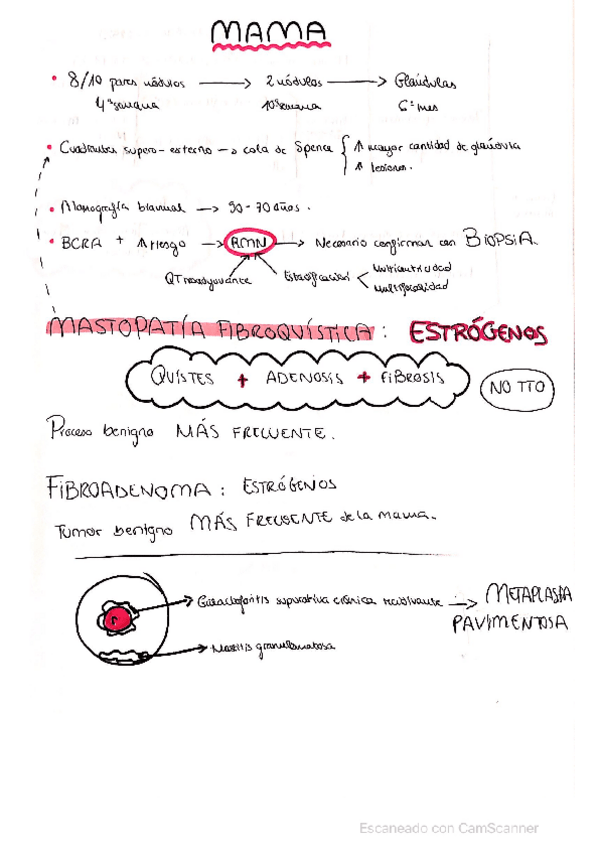 MAMA
• 8/10 pares nódulos → 2 nódulos → Glándulas
4ª semana 10ª semana 6º mes
• Cuadrantes supero-externo → cola de Spence { ↑ mayor cantidad de glándula
↑ lesiones.
• Mamografía bianual → 50-70 años.
• BCRA + ↑ riesgo → RMN → Necesario confirmar con BIOPSIA.
QT neoadyuvante Estadificación < Multicentricidad
Multifocalidad
MASTOPATÍA FIBROQUÍSTICA: ESTRÓGENOS
QUISTES + ADENOSIS + FIBROSIS NO TTO
Proceso benigno MÁS FRECUENTE.
FIBROADENOMA: ESTRÓGENOS
Tumor benigno MÁS FRECUENTE de la mama.
→ Galactoforitis supurativa crónica recidivante → METAPLASIA
PAVIMENTOSA
→ Mastitis granulomatosa
Escaneado con CamScanner